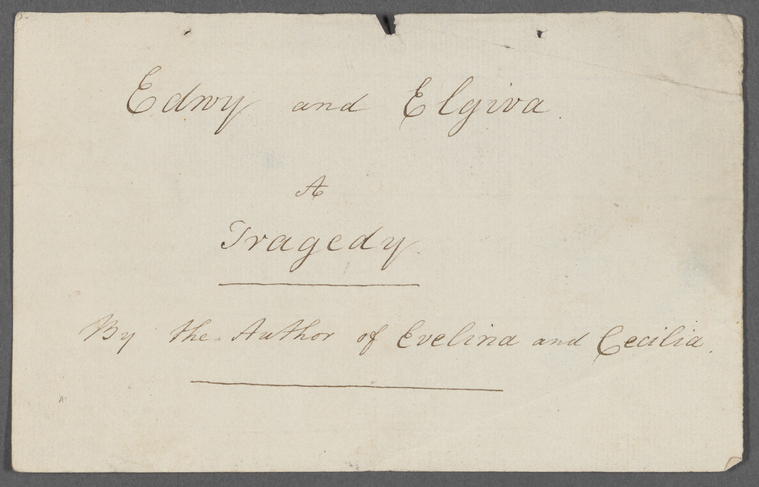 Edwy and Elgiva.
A
Tragedy.
By the Author of Evelina and Cecilia.